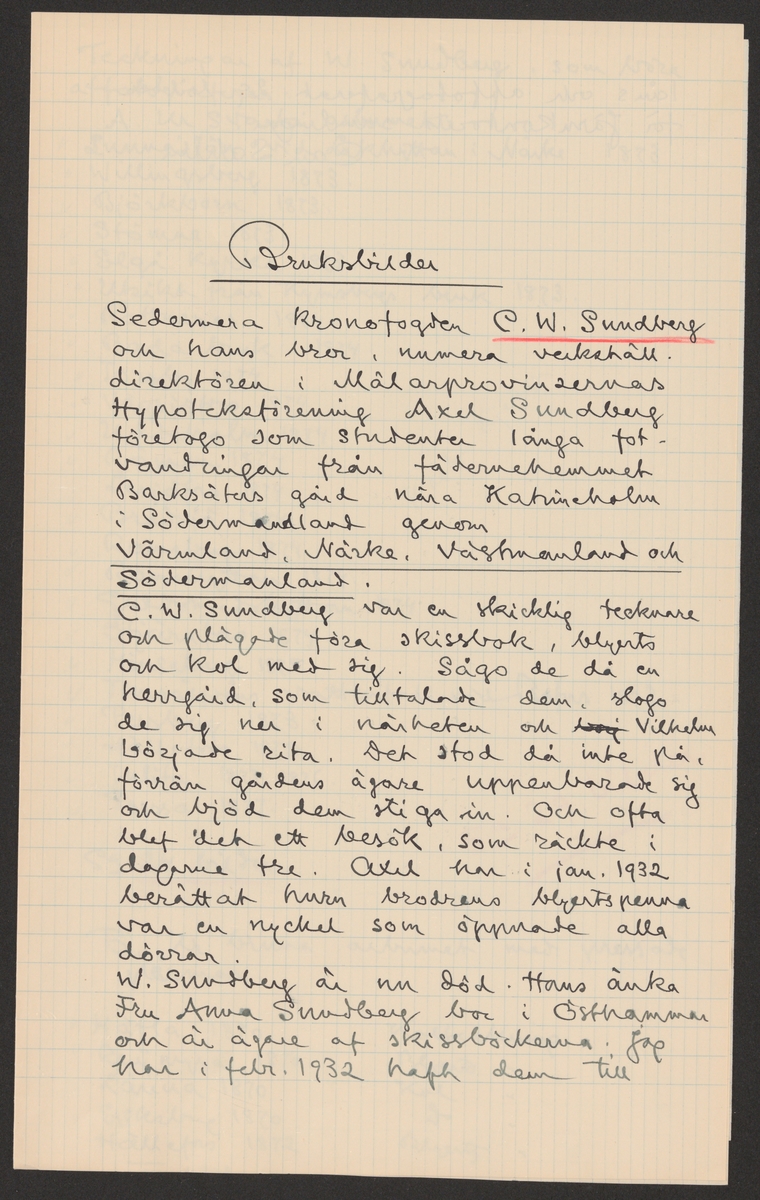 Bruksbilder
Sedermera kronofogden C. W. Sundberg
och hans bror, numera verkställ.
direktören i Mälarprovinsernas
Hypoteksförening Axel Sundberg
företogo som studenter långa fot-
vandringar från fädernehemmet
Barksäters gård nära Katrineholm
i Södermandland genom
Värmland, Närke, Västmanland och
Södermanland.
C. W. Sundberg var en skicklig tecknare
och plägade föra skissbok, blyerts
och kol med sig. Sågo de då en
herrgård, som tilltalade dem, slogo
de sig ner i närheten och Vilhelm
började rita. Det stod då inte på,
förrän gårdens ägare uppenbarade sig
och bjöd dem stiga in. Och ofta
blef det ett besök, som räckte i
dagarne tre. Axel har i jan. 1932
berättat huru brodrens blyertspenna
var en nyckel som öppnade alla
dörrar.
W. Sundberg är nu död. Hans änka
Fru Anna Sundberg bor i Östhammar
och är ägare af skissböckerna. Jag
har i febr. 1932 haft dem till